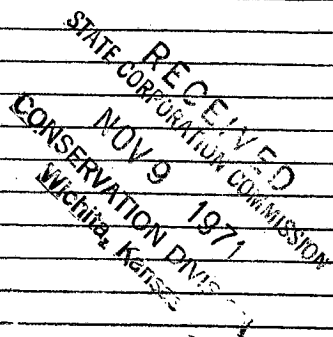 RECEIVED
STATE CORPORATION COMMISSION
NOV 9 1971
CONSERVATION DIVISION
Wichita, Kansas